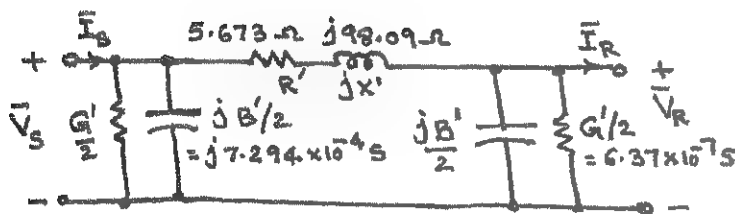 I̅S 5.673Ω j98.09Ω I̅R
+ R' jX' +
V̅S G'/2 jB'/2 = j7.294.×10⁻⁴S jB'/2 G'/2 = 6.37×10⁻⁷S V̅R
- -